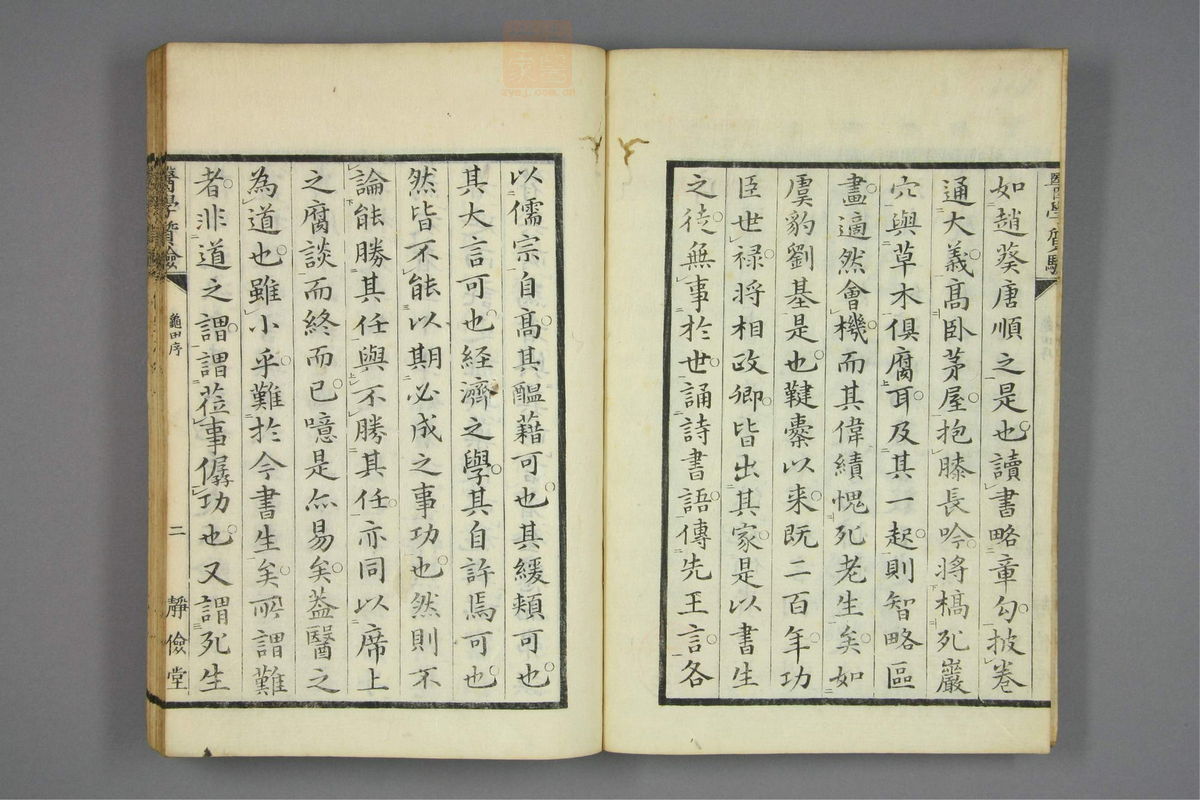 如趙葵唐順之是也讀書略章勾披卷
通大義高臥茅屋抱膝長吟將槁死巖
穴與草木俱腐耳及其一起則智略區
畫適然會機而其偉績愧死老生矣如
虞豹劉基是也鞬櫜以来既二百年功
臣世禄将相政卿皆出其家是以書生
之徒無事於世誦詩書語傳先王言各
以儒宗自高其醞藉可也其緩頰可也
其大言可也経濟之學其自許焉可也
然皆不能以期必成之事功也然則不
論能勝其任與不勝其任亦同以席上
之腐談而終而已噫是亦易矣蓋醫之
為道也雖小乎難於今書生矣所謂難
者非道之謂謂莅事僝功也又謂死生
龜田序
二
靜儉堂
zysj.com.cn